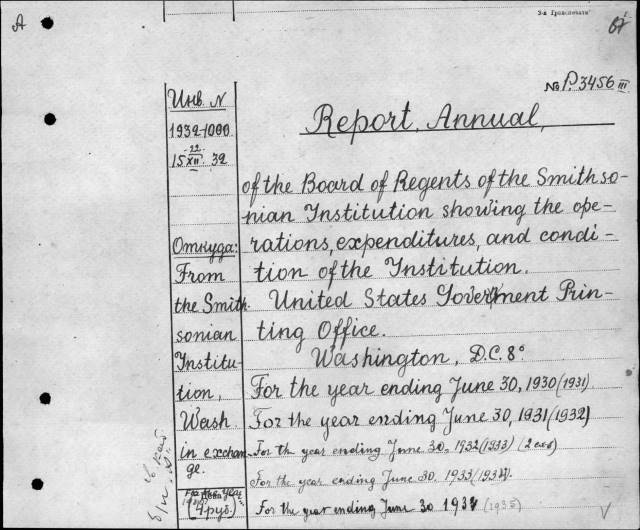 А
З-я Гроссолевати
67
№ P.3456 III
Инв. N
1932-1000
22
15 XII. 32
Report, Annual,
of the Board of Regents of the Smithso-
nian Institution showing the ope-
rations, expenditures, and condi-
tion of the Institution.
United States Government Prin-
ting Office.
Washington, D.C. 8°
For the year ending June 30, 1930 (1931).
For the year ending June 30, 1931 (1932)
For the year ending June 30, 1932 (1933) (2 экз)
For the year ending June 30, 1933 (1934).
For the year ending June 30 1934 (1935)
Откуда:
From
the Smith
sonian
Institu-
tion,
Wash.
in exchan-
ge.
Цена
4 руб.
V